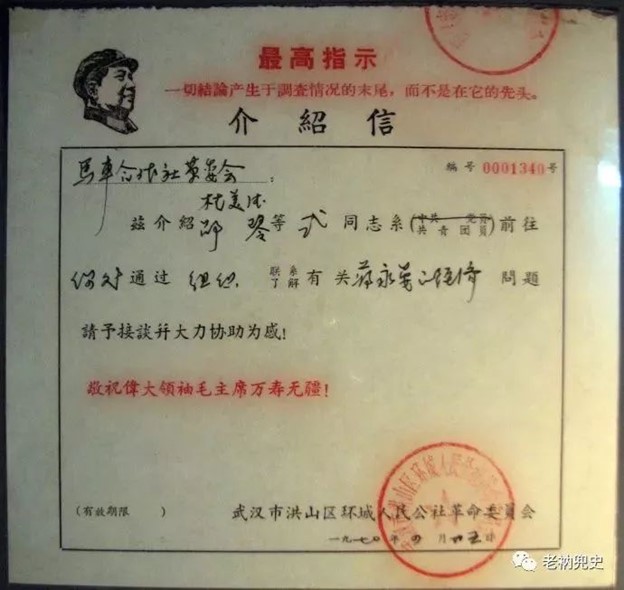 最高指示
一切結論产生于調查情况的末尾，而不是在它的先头。
介紹信
馬車合作社革委会：
編号0001340号
杜美
茲介紹邱琴等弍同志系(中共党員 共青团員)前往
你处通过组织 联系了解有关蒋永 問題
請予接談幷大力协助为感!
敬祝偉大領袖毛主席万寿无疆!
(有效期限 )
武汉市洪山区环城人民公社革命委員会
一九七〇年四月廿五日
老衲兜史